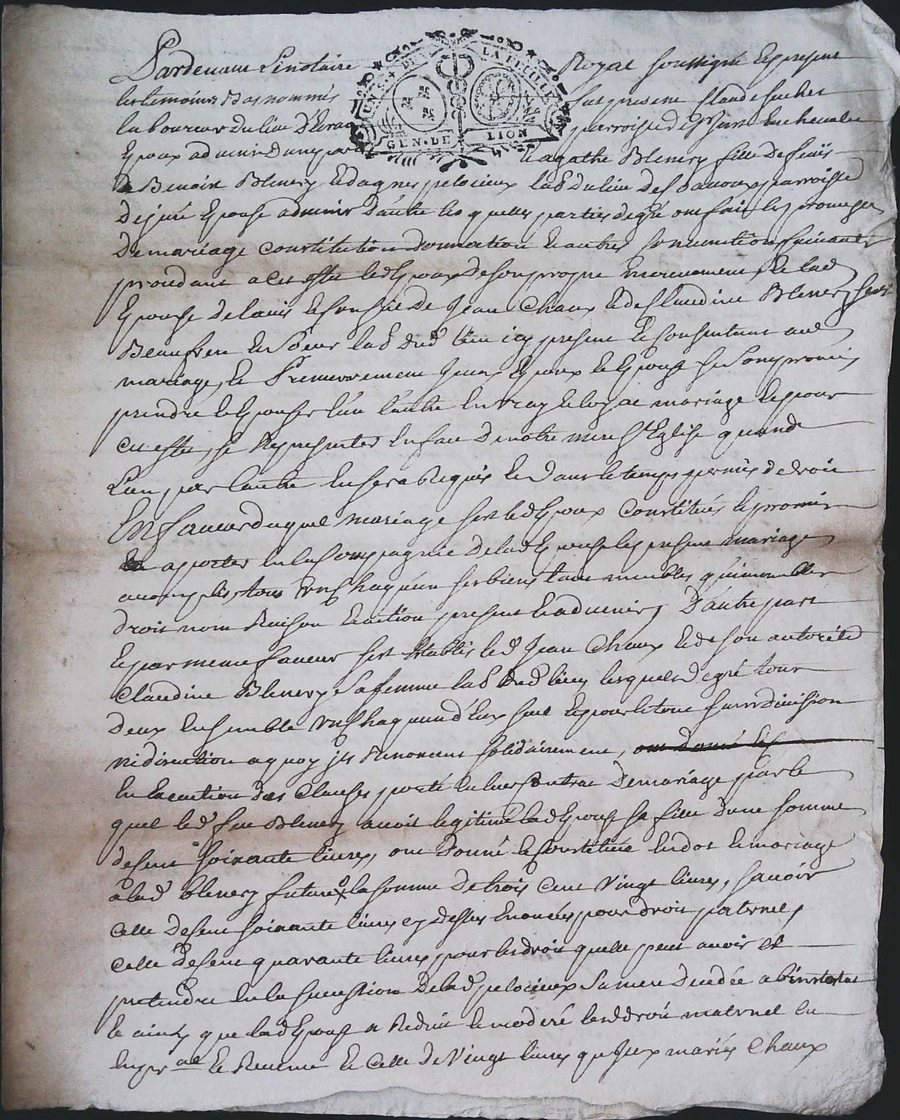 Pardevant Lenotaire Royal soussigné Et present
UN S. 4 D. LA FEUILLE
GEN. DE LION
les temoins Bas nommés fut present Claude
laboureur du lieu parroisse de
Epoux advenir d'une part Et agathe Blenery fille de feus
Benoist Blenery et d'agnes pelocieux lab. du lieu des parroisse
de juré Epouse advenir d'autre lesquelles parties de gré ont fait les promesses
De mariage Constitution donnation Et autres Conventions suivantes
procedant a ces effets led. Epoux de son propre mouvement, Et lad.
Epouse de l'avis Et de Jean Chaux Et de Claudine Blenery ses
Beaufrere Et Soeur lab. dud. lieu icy present Et Consentant aud.
mariage, Et Premierement Epoux Et Epouse se sont promis
prendre Et Epouser l'un l'autre En vray Et loyal mariage Et pour
cet effet, se Representer En face De notre mere Ste Eglise quand
L'un par l'autre En sera Requis Et dans le temps permis de droit
En faveur duquel mariage s'est led. Epoux Constitué Et promis
aporter En la Compagnie De lad. Epouse le present mariage
accomply, tous Un Chaqu'un ses biens tant meubles qu'immeubles
droit nom Raison Et action present Et advenir, D'autre part
Et par meme faveur sont Etablis led. Jean Chaux Et de son autorité
Claudine Blenery Sa femme lab. dud. lieu lesquels de gré tous
deux Ensemble Un Chaquun d'Eux seul Et pour le tout sans division
ni discution a quoy ils Renoncent solidairement, ont donné les
En Execution des Clauses porté En leur Contrat De mariage par le
quel led. feu Blenery avoit legitimé lad. Epouse sa fille d'une somme
de Cent soixante livres, ont donné Et Constitué En dot Et mariage
à lad. Blenery future la somme de trois Cent Vingt livres, sçavoir
Celle de Cent soixante livres cy dessus Enoncée pour droit paternel,
Celle de Cent quarante livres pour les droit quelle peut avoir Et
pretendre En la succession De lad. pelocieux Sa mere decedée abintestat
Et ainsy que lad. Epouse a Reduit Et moderé lesd. droit maternel En
Et Celle de Vingt livres que mariés Chaux